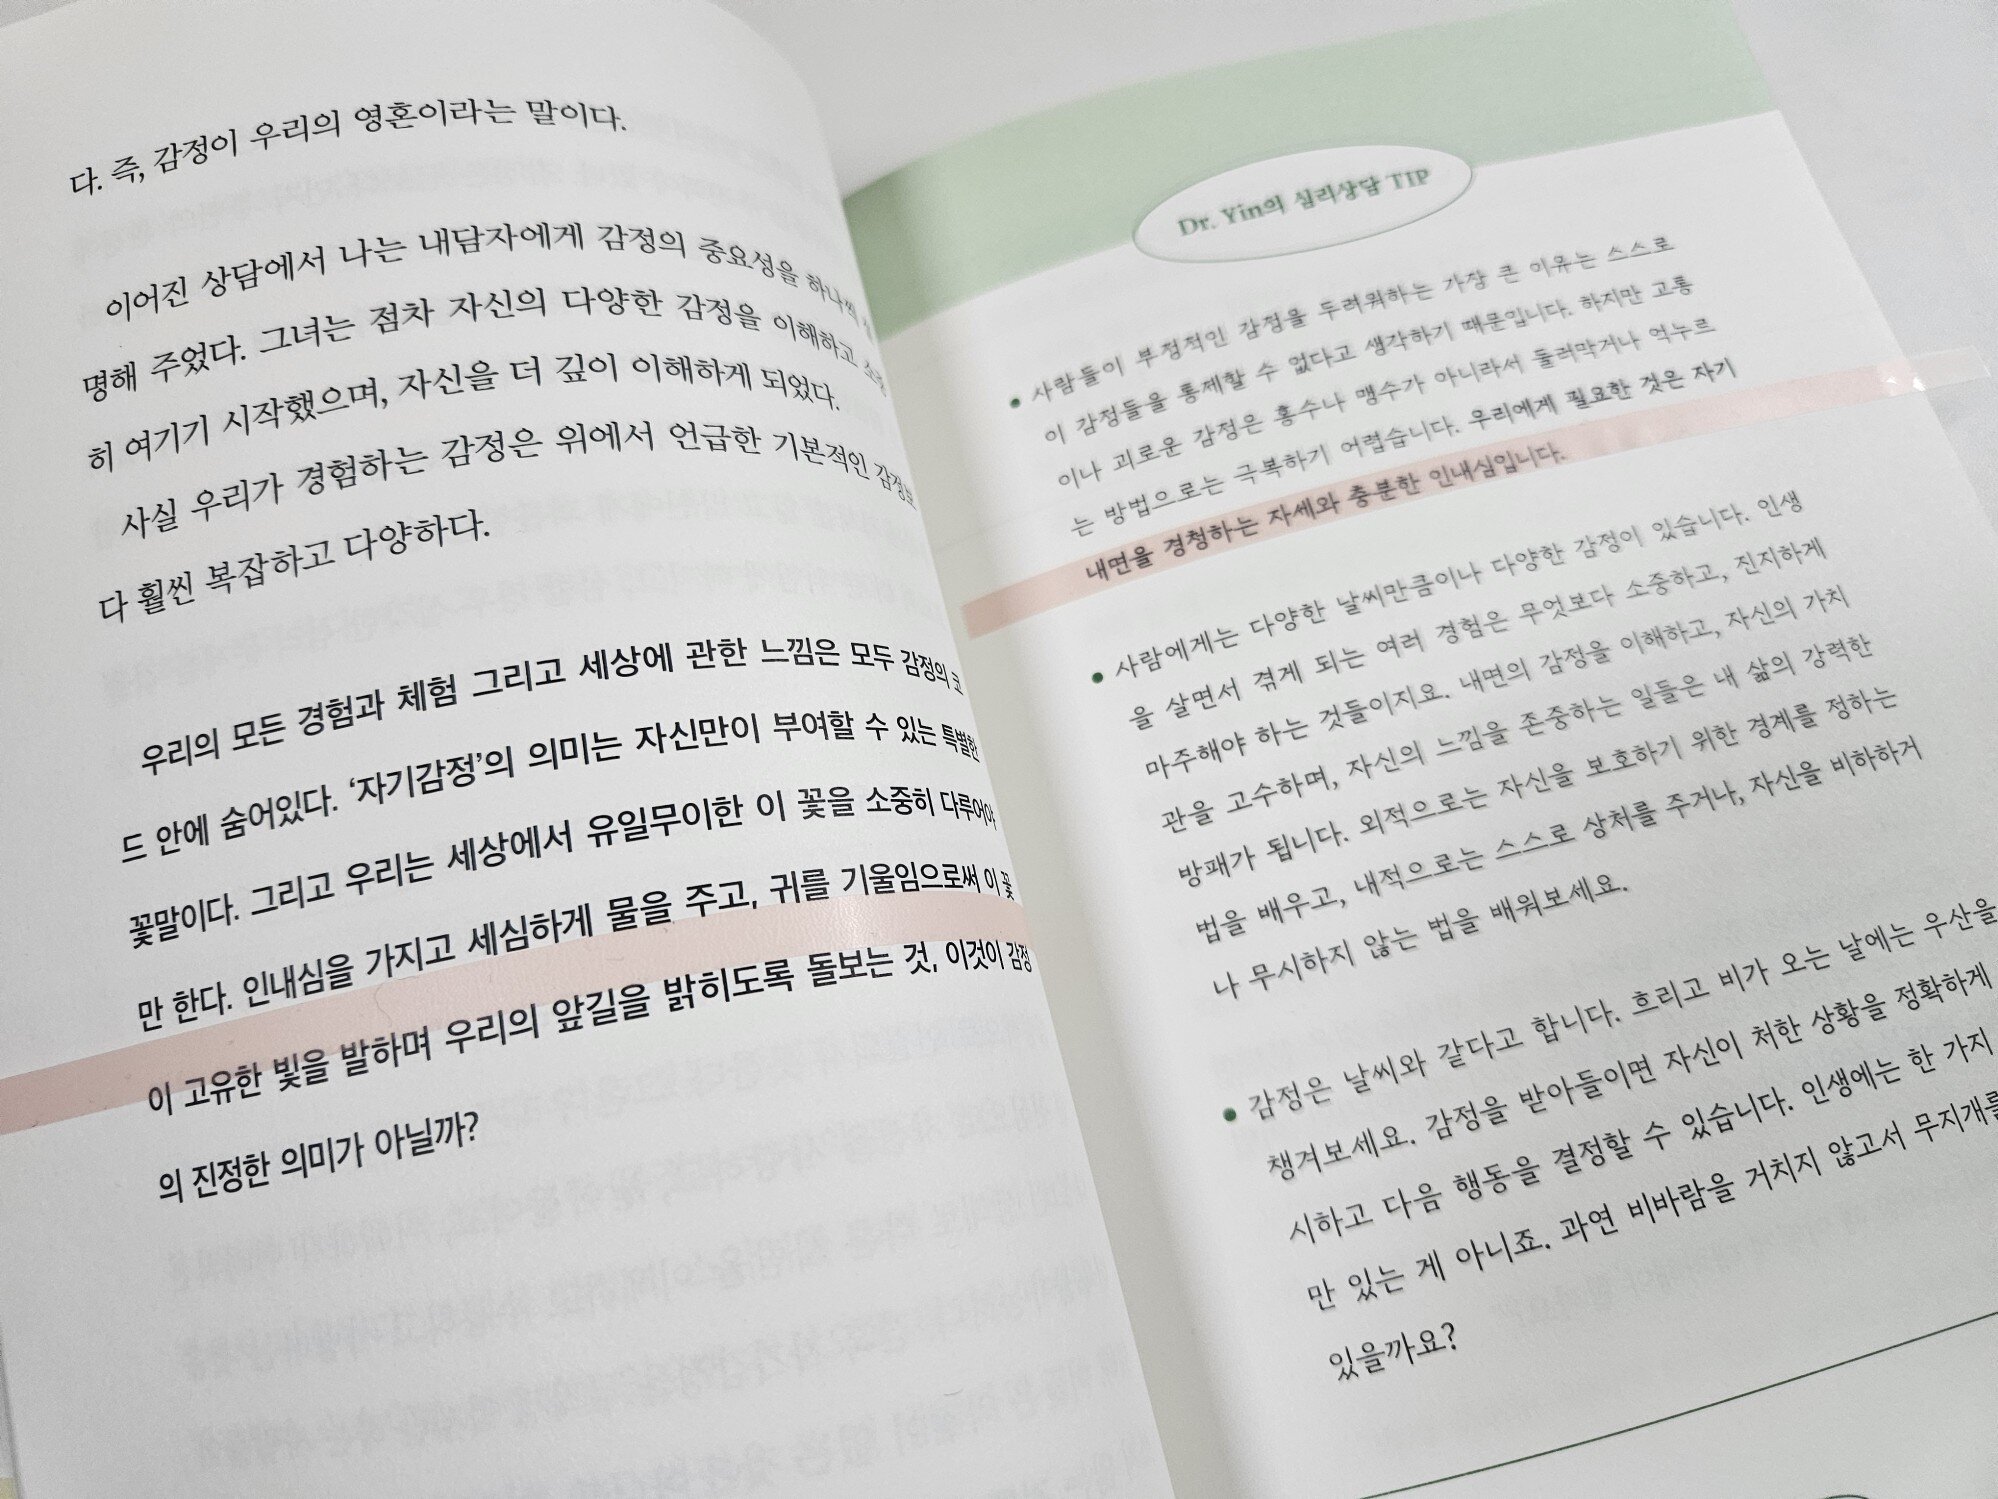 다. 즉, 감정이 우리의 영혼이라는 말이다.
이어진 상담에서 나는 내담자에게 감정의 중요성을 하나씩
명해 주었다. 그녀는 점차 자신의 다양한 감정을 이해하고
히 여기기 시작했으며, 자신을 더 깊이 이해하게 되었다.
사실 우리가 경험하는 감정은 위에서 언급한 기본적인 감정보
다 훨씬 복잡하고 다양하다.
우리의 모든 경험과 체험 그리고 세상에 관한 느낌은 모두 감정의 코
드 안에 숨어있다. ‘자기감정’의 의미는 자신만이 부여할 수 있는 특별한
꽃말이다. 그리고 우리는 세상에서 유일무이한 이 꽃을 소중히 다루어야
만 한다. 인내심을 가지고 세심하게 물을 주고, 귀를 기울임으로써 이 꽃
이 고유한 빛을 발하며 우리의 앞길을 밝히도록 돌보는 것, 이것이 감정
의 진정한 의미가 아닐까?
Dr. Yin의 심리상담 TIP
• 사람들이 부정적인 감정을 두려워하는 가장 큰 이유는 스스로
이 감정들을 통제할 수 없다고 생각하기 때문입니다. 하지만 고통
이나 괴로운 감정은 홍수나 맹수가 아니라서 둘러막거나 억누르
는 방법으로는 극복하기 어렵습니다. 우리에게 필요한 것은 자기
내면을 경청하는 자세와 충분한 인내심입니다.
• 사람에게는 다양한 날씨만큼이나 다양한 감정이 있습니다. 인생
을 살면서 겪게 되는 여러 경험은 무엇보다 소중하고, 진지하게
마주해야 하는 것들이지요. 내면의 감정을 이해하고, 자신의 가치
관을 고수하며, 자신의 느낌을 존중하는 일들은 내 삶의 강력한
방패가 됩니다. 외적으로는 자신을 보호하기 위한 경계를 정하는
법을 배우고, 내적으로는 스스로 상처를 주거나, 자신을 비하하거
나 무시하지 않는 법을 배워보세요.
• 감정은 날씨와 같다고 합니다. 흐리고 비가 오는 날에는 우산을
챙겨보세요. 감정을 받아들이면 자신이 처한 상황을 정확하게
시하고 다음 행동을 결정할 수 있습니다. 인생에는 한 가지
만 있는 게 아니죠. 과연 비바람을 거치지 않고서 무지개를
있을까요?